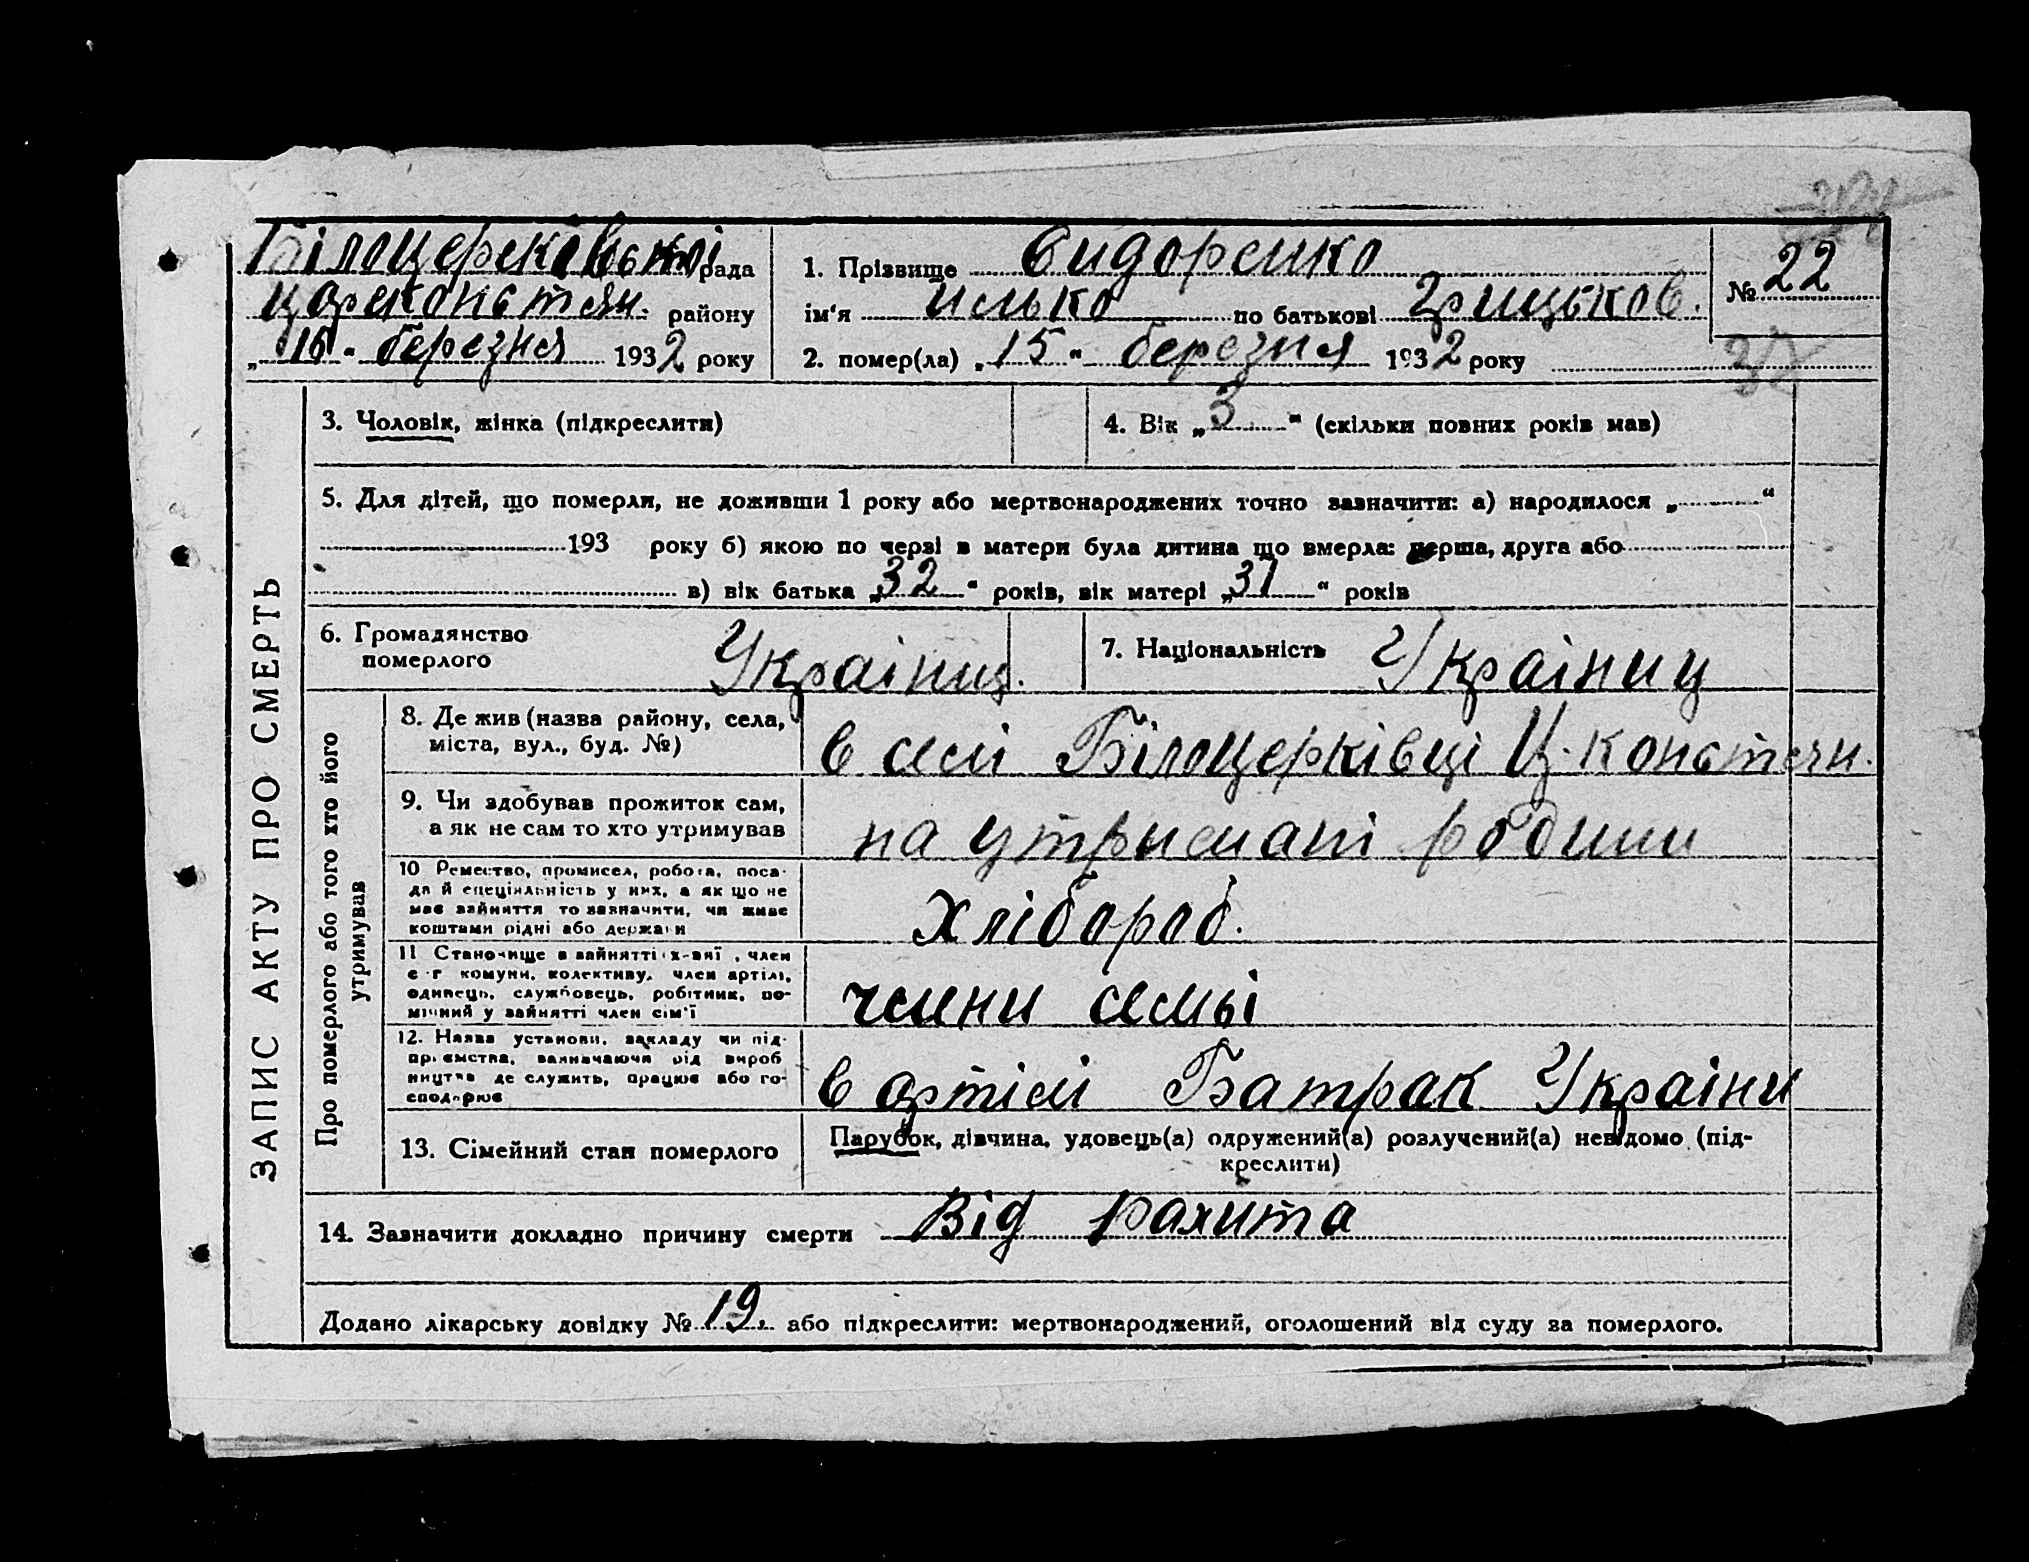 Білоцерековської рада
Цареконстян. району
„16“ березня 1932 року
1. Прізвище Сидоренко
ім'я Илько по батькові Грицьков.
№ 22
2. помер(ла) „15“ березня 1932 року
37
3. Чоловік, жінка (підкреслити)
4. Вік „3“ (скільки повних років мав)
5. Для дітей, що померли, не доживши 1 року або мертвонароджених точно зазначити: а) народилося „ “
193 року б) якою по черзі в матери була дитина що вмерла: перша, друга або
в) вік батька „32“ років, вік матері „31“ років
6. Громадянство
померлого
Українц.
7. Національність Українц
ЗАПИС АКТУ ПРО СМЕРТЬ
Про померлого або того хто його
утримував
8. Де жив (назва району, села,
міста, вул., буд. №)
в селі Білоцерківці Ц. констян.
9. Чи здобував прожиток сам,
а як не сам то хто утримував
на утрыматі родини
10 Ремество, промисел, робота, поса-
да й спеціяльність у них, а як що не
має зайняття то зазначити, чи живе
коштами рідні або держави
хлібороб.
11 Становище в зайнятті х-вні , член
с-г комуни, колективу, член артілі,
одинець, службовець, робітник, по-
мічний у зайнятті член сім'ї
члини семьі
12. Назва установи, закладу чи під-
приємства, зазначаючи рід вироб
ництва де служить, працює або го-
сподарює
в артілі Батрак Україны
13. Сімейний стан померлого
Парубок, дівчина, удовець(а) одружений(а) розлучений(а) невідомо (під-
креслити)
14. Зазначити докладно причину смерти Від рахита
Додано лікарську довідку № 19. або підкреслити: мертвонароджений, оголошений від суду за померлого.